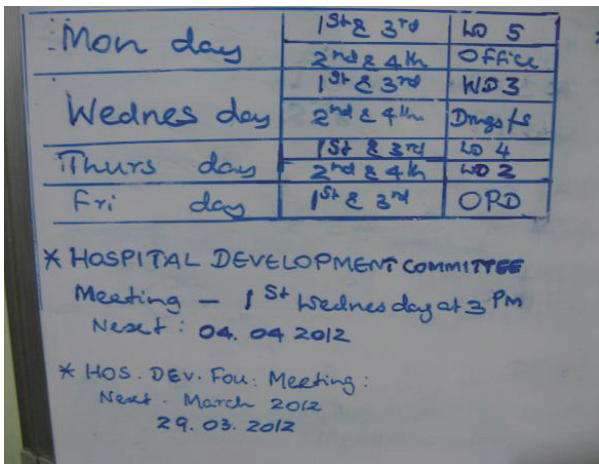 Mon day 1st & 3rd WD 5
2nd & 4th Office
Wednes day 1st & 3rd WD3
2nd & 4th Drugs/s
Thurs day 1st & 3rd WD 4
2nd & 4th WD 2
Fri day 1st & 3rd OPD
* HOSPITAL DEVELOPMENT COMMITTEE
Meeting – 1st Wednesday at 3 PM
Next : 04. 04 2012
* HOS. DEV. Fou: Meeting:
Next. March 2012
29. 03. 2012